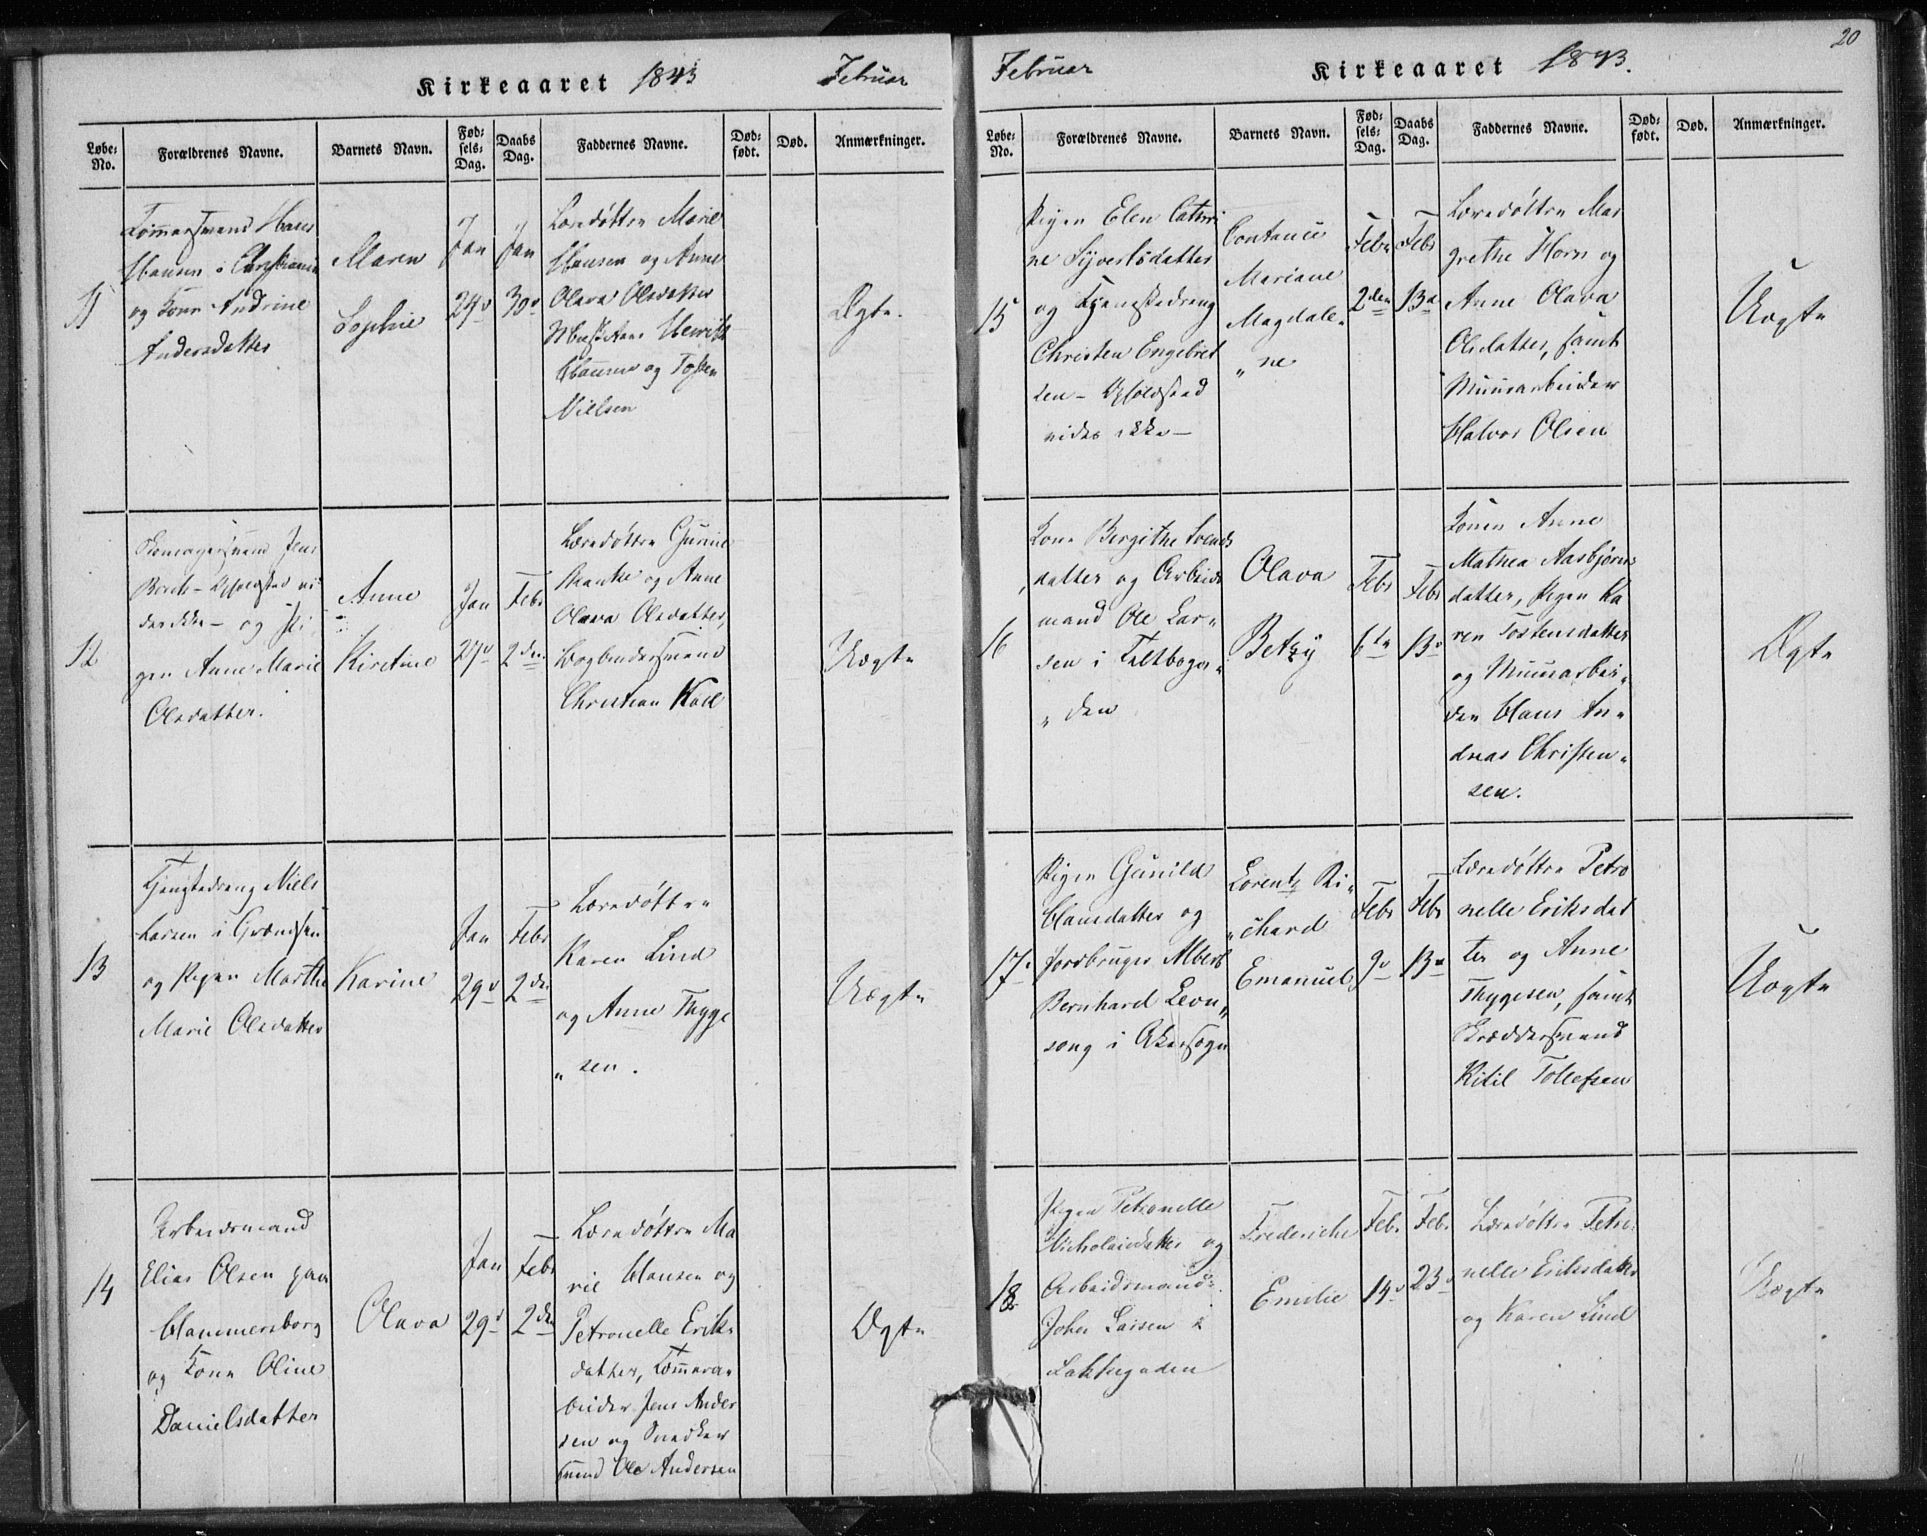 20
Kirkeaaret 1843
Februar
Løbe-No.
Forældrenes Navne.
Barnets Navn.
Fødsels-Dag.
Daabs Dag.
Faddernes Navne.
Dødfødt.
Død.
Anmærkninger.
11
Tømmersvend Hans
Hansen i Christiania
og Kone Andrine
Andersdatter
Maren
Sophie
Jan
24d
Jan
30d
Læredøttre Marie
Hansen og Anne
Olava Olsdatter
Henrik
Hansen og
Nielsen
Ægte.
12
Skomagersvend Jens
Opholdsted vi
des ikke - og Pi
gen Anne Marie
Olsdatter.
Anne
Kirstine
Jan
27d
Feb
2den
Læredøttre Gurine
og Anne
Olava Olsdatter,
Bogbindersvend
Christian
Uægte
13
Tjenstedreng Niels
Larsen i Grændsen
og Pigen Marthe
Marie Olsdatter
Karine
Jan
29d
Feb
2den
Læredøttre
Karen Lind
og Anne Thyge
" sen.
Uægte
14
Arbeidsmand
Elias Olsen paa
Hammersborg
og Kone Oline
Danielsdatter
Olava
Jan
29d
Feb
2den
Læredøttre Ma
rie Hansen og
Petronelle Eriks
datter, Tømmerar
beider Jens Ander
sen og Snedker
svend Ole Andersen
Ægte
Februar
Kirkeaaret 1843.
Løbe-No.
Forældrenes Navne.
Barnets Navn.
Fødsels-Dag.
Daabs Dag.
Faddernes Navne.
Dødfødt.
Død.
Anmærkninger.
15
Pigen Elen Cathri
ne Syverlsdatter
og Tjenestedreng
Christen Engebret
sen - Opholdsted
vides ikke -
Contance
Mariane
Magdale-
" ne
Feb
2den
Feb
13d
Læredøttre Mar
grethe Horn og
Anne Olava
Olsdatter, samt
Muurarbeider
Halvor Olsen
Uægte
16
Kone Bergithe Svends
datter og Arbeids
mand Ole Lar-
sen i Feltboga-
" den
Olava
Betzy
Feb
6te
Feb
13d
Konen Anne
Mathea Aasbjørns
datter, Pigen Ka
ren Tostensdatter
og Muurarbei-
der Hans An-
dreas Christen-
sen.
Ægte
17.
Pigen Gunild
Hansdatter og
Jordbruger Albert
Bernhard Leon-
song i Akersogn
Lorentz Ri-
" chard
Emanuel
Feb
9d
Feb
13d
Læredøttre Petro
nelle Eriksdat
ter og Anne
Thygesen, samt
Skræddersvend
Kitil Tollefsen
Uægte
18.
Pigen Petronelle
Nicholaisdatter og
Arbeidsmand
Johen Larsen i
Lakkegaden
Frederiche
Emilie
Feb
14d
Feb
23d
Læredøttre Petro
nelle Eriksdatter
og Karen Lind
Uægte